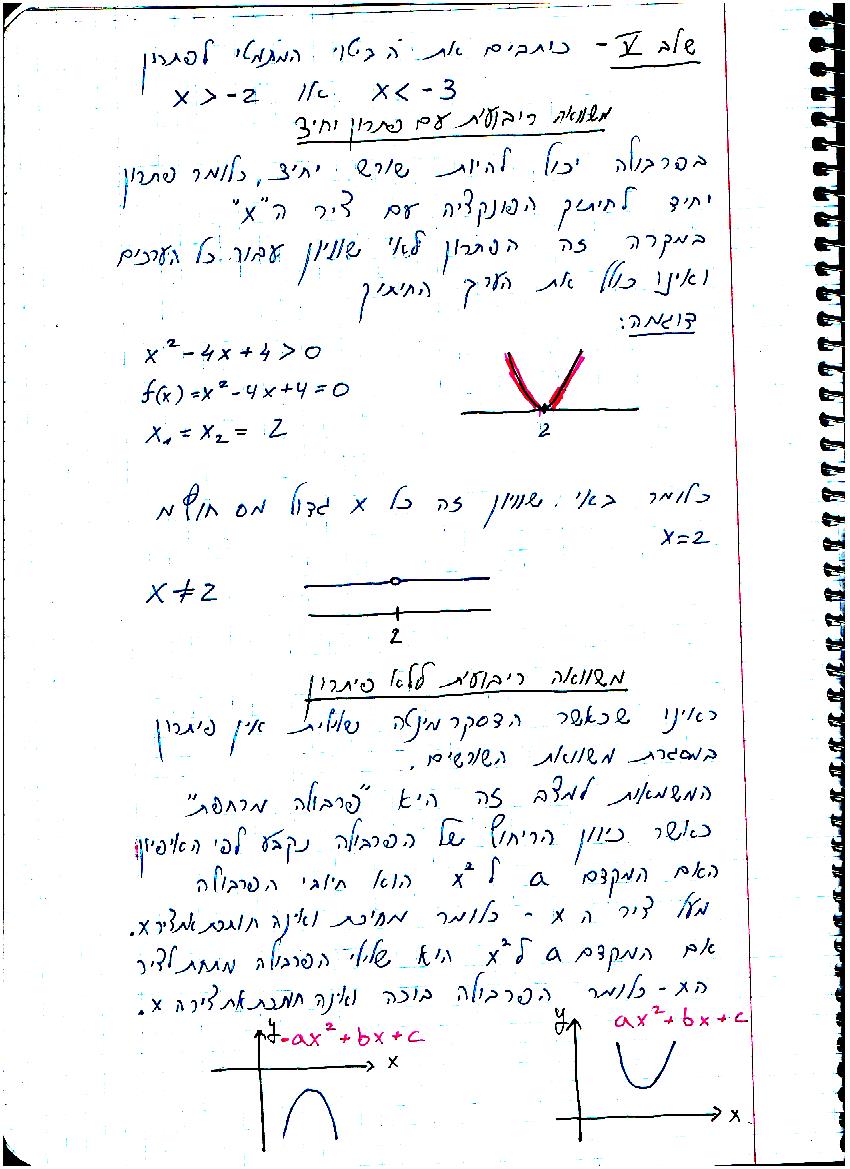 שלב V - כותבים את הביטוי המתמטי לפתרון
x > -2 או x < -3
משוואה ריבועית עם פתרון יחיד
בפרבולה יכול להיות שורש יחיד, כלומר פתרון
יחיד לחיתוך הפונקציה עם ציר ה"x"
במקרה זה הפתרון לאי שוויון עבור כל הערכים
ואינו כולל את הערך החיתוך
דוגמה:
x² - 4x + 4 > 0
f(x) = x² - 4x + 4 = 0
x₁ = x₂ = 2
2
כלומר באי שוויון זה כל x גדול מ חוץ מ
x = 2
x ≠ 2
2
משוואה ריבועית ללא פיתרון
ראינו שכאשר הדסקרמינטה שלילית אין פיתרון
במסגרת משוואת השורשים.
המשמאות למצב זה היא "פרבולה מרחפת"
כאשר כיוון הריחוף של הפרבולה נקבע לפי האיפיון
האם המקדם a ל x² הוא חיובי הפרבולה
מעל ציר ה x - כלומר מחיכת ואינה חותכת את ציר x.
אם המקדם a ל x² היא שלילי הפרבולה מתחת לציר
הx - כלומר הפרבולה בוכה ואינה חותכת את ציר ה x.
y
-ax² + bx + c
x
y
ax² + bx + c
x